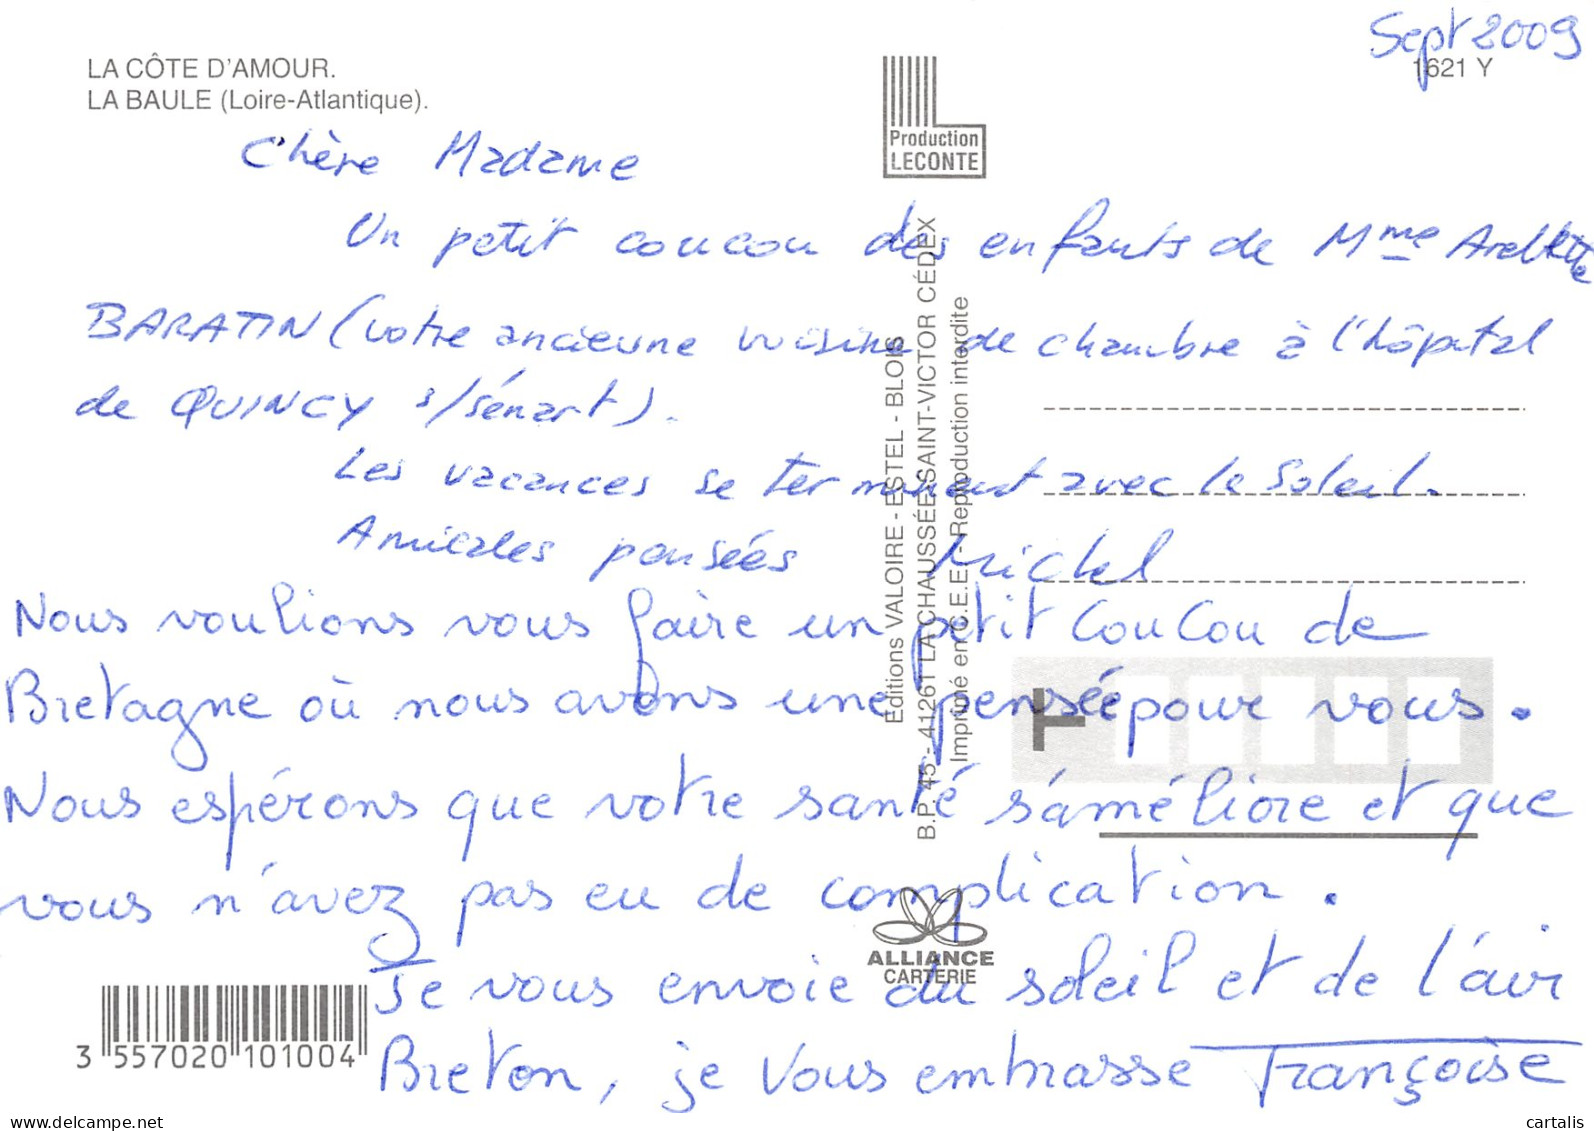 Sept 2009
1621 Y
LA CÔTE D'AMOUR.
LA BAULE (Loire-Atlantique).
Production
LECONTE
Chère Madame
Un petit coucou des enfants de Mme
BARATIN (votre ancienne voisine de chambre à l'hôpital
de QUINCY s/Sénart).
Les vacances se terminent avec le Soleil.
Amicales pensées Michel
Nous voulions vous faire un petit CouCou de
Bretagne où nous avons une pensée pour vous.
Nous espérons que votre santé s'améliore et que
vous n'avez pas eu de complication.
Je vous envoie du soleil et de l'air
Breton, je vous embrasse Françoise
Editions VALOIRE - ESTEL - BLOIS
B.P. 45 - 41261 LA CHAUSSÉE-SAINT-VICTOR CÉDEX
Imprimé en C.E.E. - Reproduction interdite
ALLIANCE
CARTERIE
3 557020 101004
www.delcampe.net
cartalis